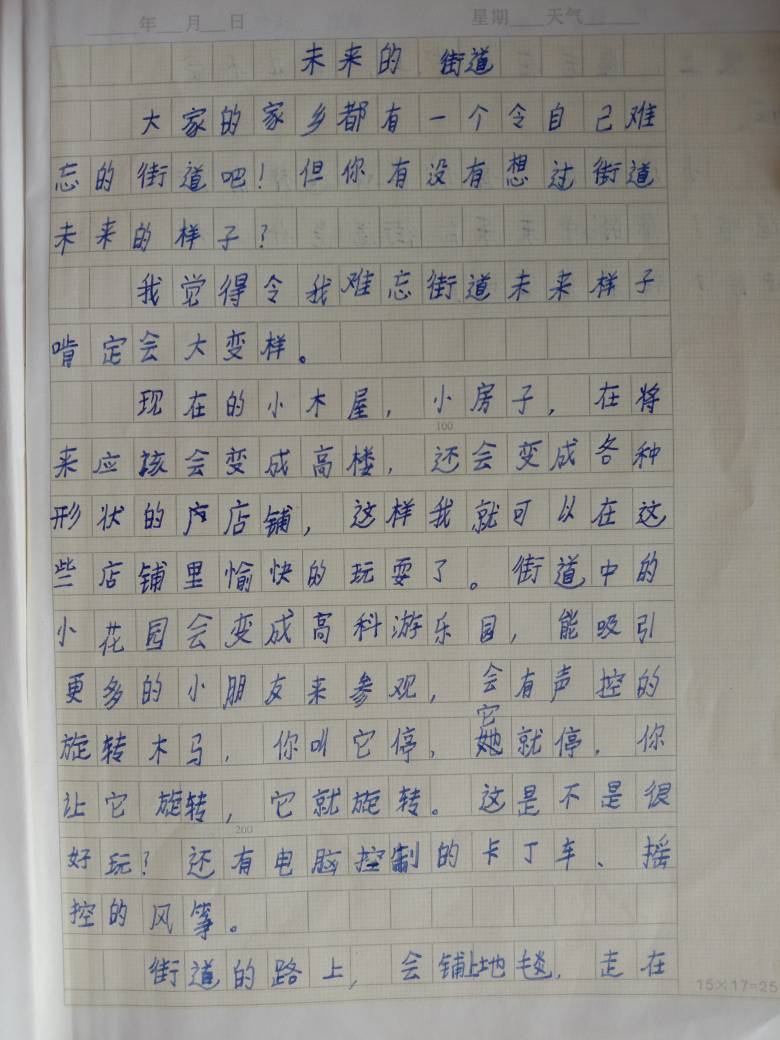 年 月 日 星期 天气
未来的 街道
大家的家乡都有一个令自己难
忘的街道吧！但你有没有想过街道
未来的样子？
我觉得令我难忘街道未来样子
啃定会大变样。
现在的小木屋，小房子，在将
100
来应该会变成高楼，还会变成各种
形状的店铺，这样我就可以在这
些店铺里愉快的玩耍了。街道中的
小花园会变成高科游乐园，能吸引
更多的小朋友来参观，会有声控的
旋转木马，你叫它停，它就停，你
让它旋转，它就旋转。这是不是很
200
好玩？还有电脑控制的卡丁车、摇
控的风筝。
街道的路上，会铺上地毯，走在
15×17=25